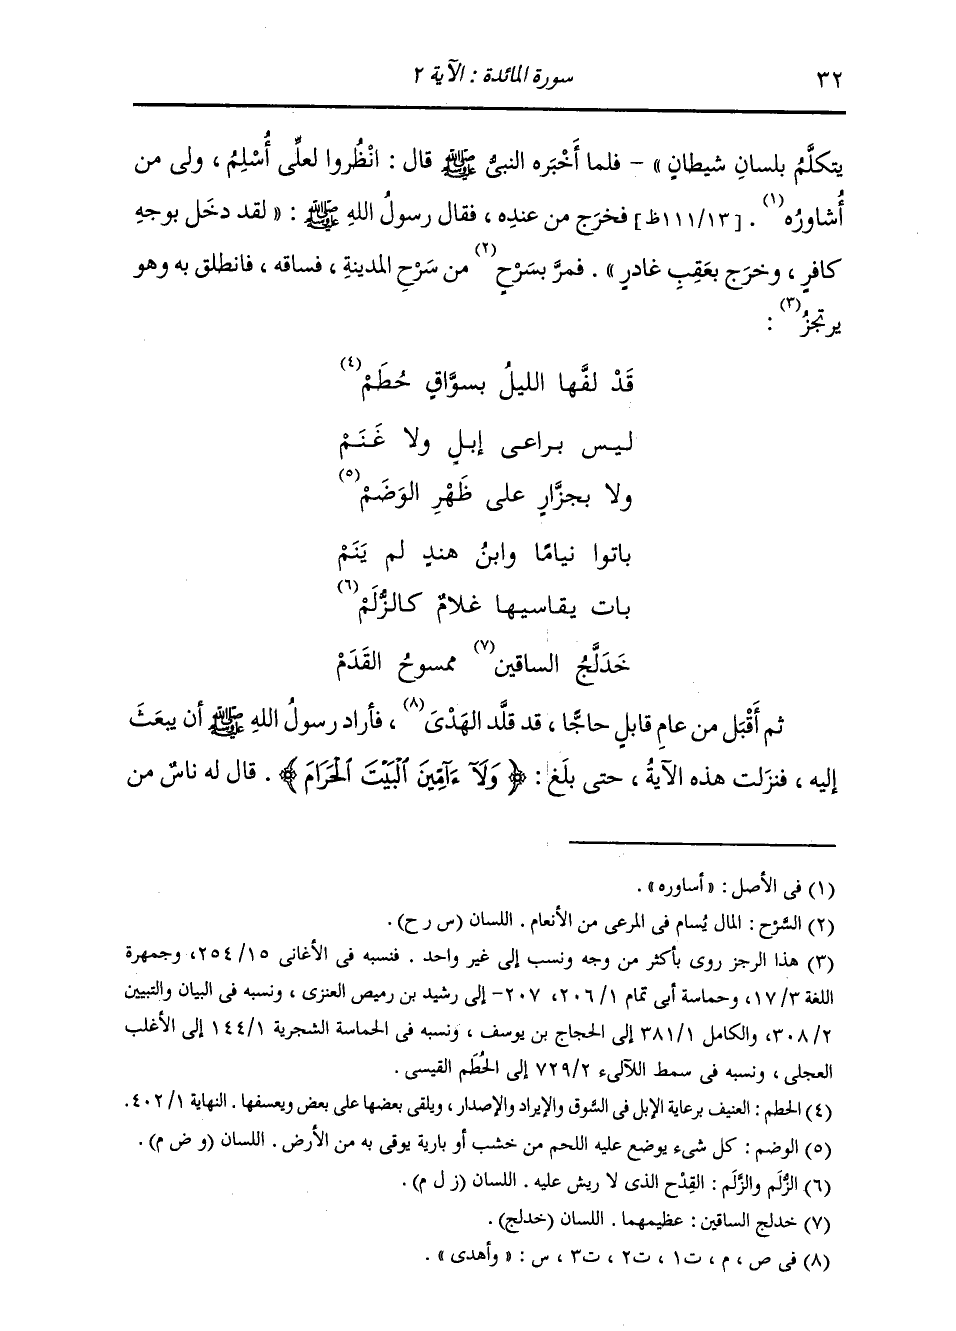 ٣٢ سورة المائدة : الآية ٢
يتكلَّمُ بلسانِ شيطانٍ » – فلما أَخْبَره النبىُّ ﷺ قال : انْظُروا لعلِّى أُسْلِمُ ، ولى من
أُشاورُه(١) . [١٣/١١١ظ] فخرَج من عندِه ، فقال رسولُ اللهِ ﷺ : « لقد دخَل بوجهِ
كافرٍ ، وخرَج بعَقِبِ غادرٍ » . فمرَّ بسَرْحٍ(٢) من سَرْحِ المدينةِ ، فساقه ، فانطلق به وهو
يرتجزُ(٣) :
قَدْ لفَّها الليلُ بسوَّاقٍ حُطَمْ(٤)
ليس براعى إبلٍ ولا غَنَمْ
ولا بجزَّارٍ على ظَهْرِ الوَضَمْ(٥)
باتوا نيامًا وابنُ هندٍ لم يَنَمْ
بات يقاسيها غلامٌ كالزُّلَمْ(٦)
خَدَلَّجُ الساقين(٧) ممسوحُ القَدَمْ
ثم أَقْبَل من عامِ قابلٍ حاجًّا ، قد قلَّد الهَدْىَ(٨) ، فأراد رسولُ اللهِ ﷺ أن يبعَثَ
إليه ، فنزَلت هذه الآيةُ ، حتى بلَغ : ﴿ وَلَآ ءَآمِّينَ ٱلْبَيْتَ ٱلْحَرَامَ ﴾ . قال له ناسٌ من
(١) فى الأصل : « أساوره » .
(٢) السَّرْح : المال يُسام فى المرعى من الأنعام . اللسان (س ر ح) .
(٣) هذا الرجز روى بأكثر من وجه ونسب إلى غير واحد . فنسبه فى الأغانى ١٥/ ٢٥٤، وجمهرة
اللغة ٣/ ١٧، وحماسة أبى تمام ١/ ٢٠٦، ٢٠٧– إلى رشيد بن رميص العنزى ، ونسبه فى البيان والتبيين
٢/ ٣٠٨، والكامل ١/ ٣٨١ إلى الحجاج بن يوسف ، ونسبه فى الحماسة الشجرية ١/ ١٤٤ إلى الأغلب
العجلى ، ونسبه فى سمط اللآلىء ٢/ ٧٢٩ إلى الحُطَم القيسى .
(٤) الحطم : العنيف برعاية الإبل فى السَّوق والإيراد والإصدار ، ويلقى بعضها على بعض ويعسفها . النهاية ١/ ٤٠٢.
(٥) الوضم : كل شىء يوضع عليه اللحم من خشب أو بارية يوقى به من الأرض . اللسان (و ض م) .
(٦) الزُّلَم والزَّلَم : القِدْح الذى لا ريش عليه . اللسان (ز ل م) .
(٧) خدلج الساقين : عظيمهما . اللسان (خدلج) .
(٨) فى ص ، م ، ت١ ، ت٢ ، ت٣ ، س : « وأهدى » .